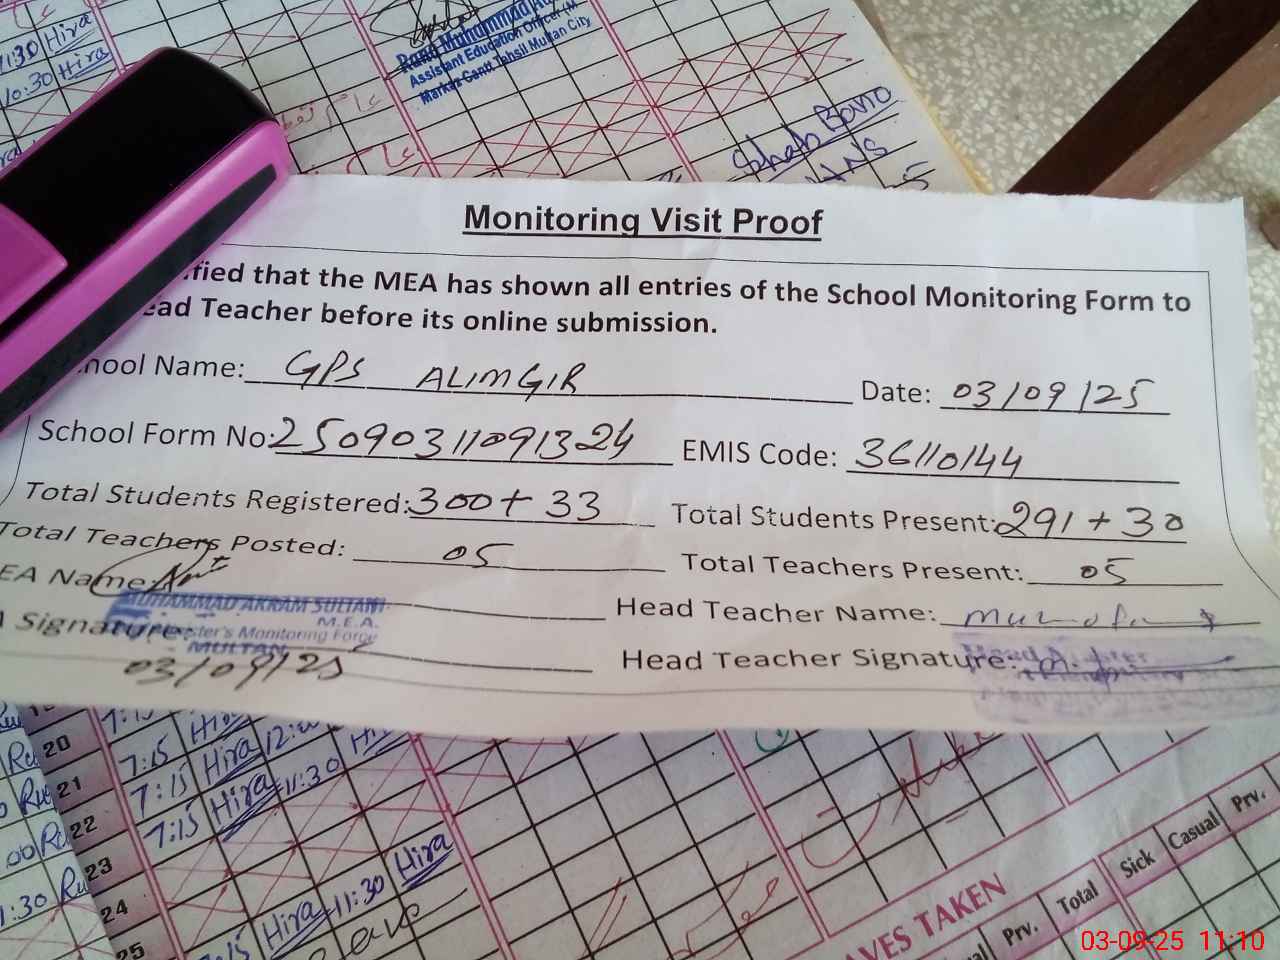 11:30 Hira
10:30 Hira
Rana Muhammad
Assistant Education Officer (M
Markaz Cantt Tahsil Multan City
Shah Bano
Monitoring Visit Proof
fied that the MEA has shown all entries of the School Monitoring Form to
ead Teacher before its online submission.
hool Name: GPS ALIMGIR Date: 03/09/25
School Form No: 25090311091324 EMIS Code: 36110144
Total Students Registered: 300+33 Total Students Present: 291+30
Total Teachers Posted: 05 Total Teachers Present: 05
EA Name: Head Teacher Name:
MUHAMMAD AKRAM SULTANI
M.E.A.
Signature: Head Teacher Signature:
ister's Monitoring Force
MULTAN
03/09/25
20 7:15 Hira
21 7:15 Hira 12:
22 7:15 Hira 11:30
23
24 11:30 Hira
25 :15 Hira
1:30
AVES TAKEN
Prv. Total Sick Casual Prv.
03-09-25 11:10